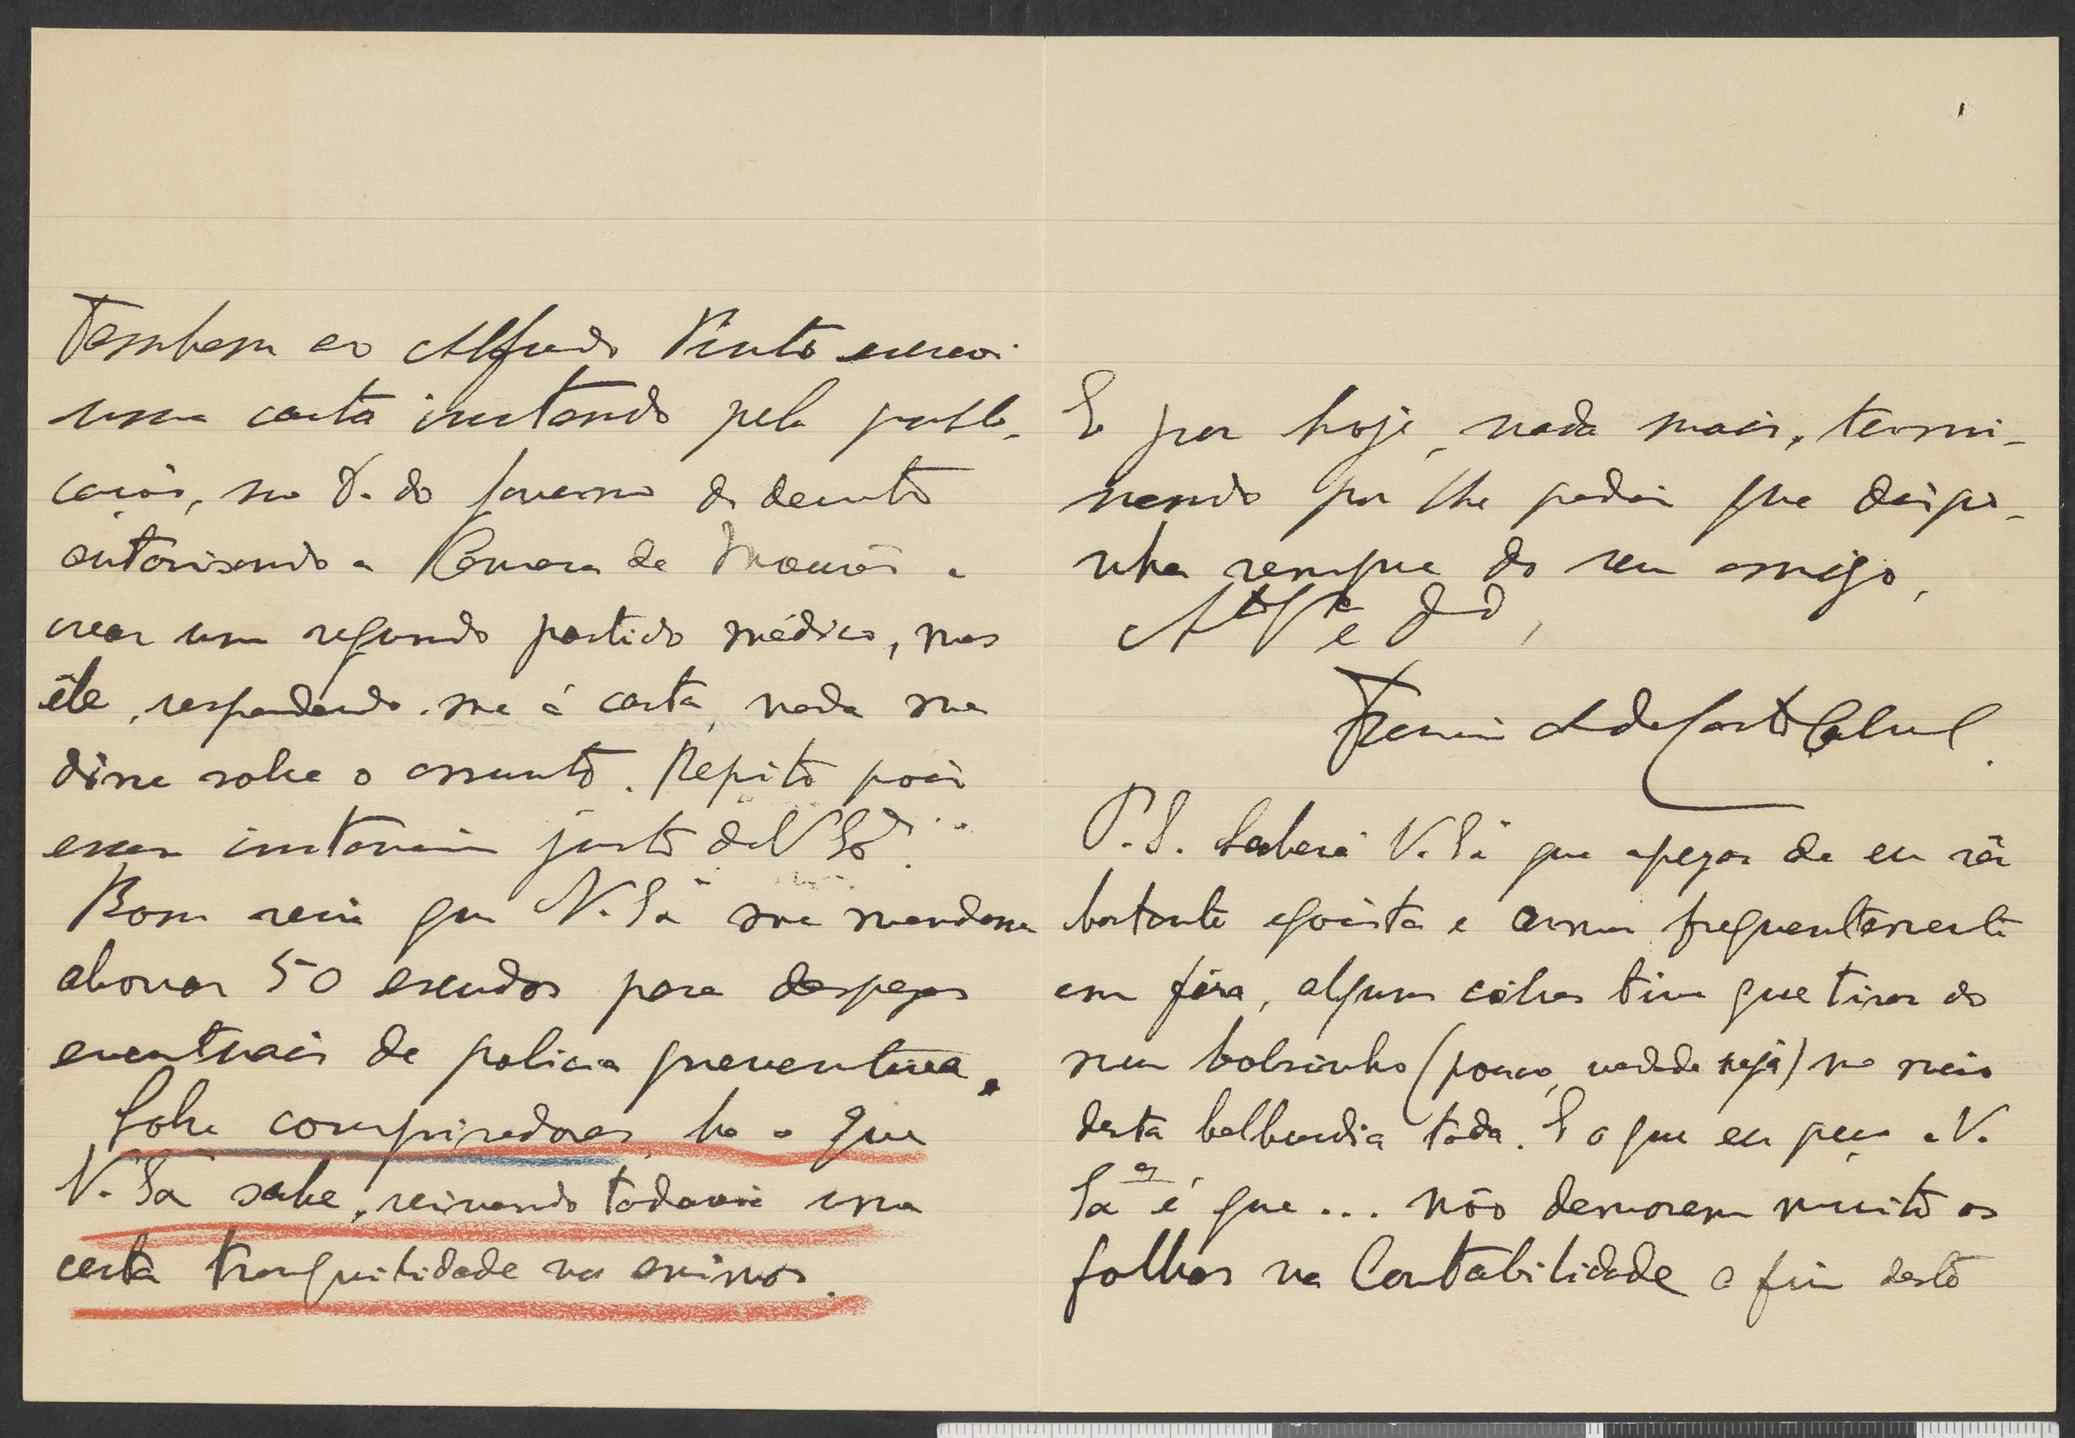 Tambem ao Alfredo Pinto escrevi
uma carta instando pela publi-
cação, no D. do Governo do decreto
autorisando a Camara de Mação a
crear um segundo partido médico, mas
êle, respondendo-me á carta, nada me
disse sobre o assunto. Repito pois
essa instancia junto de V. Sª.
Bom seria que V. Sª me mandasse
abonar 50 escudos para despezas
eventuais de policia preventiva.
Sobre conspiradores, ha o que
V. Sª sabe, reinando todavia uma
certa tranquilidade nos animos.
E por hoje, nada mais, termi-
nando por lhe pedir que dispo-
nha sempre do seu amigo,
Attº Vº e
da Costa Cabral.
P.S. Saberá V. Sª que apezar de eu sêr
bastante egoista e comer frequentemente
em fóra, alguns cobres tive que tirar do
meu bolsinho (pouco, verdade seja) no meio
desta balburdia toda. E o que eu peço a V.
Sª é que... não demorem muito as
folhas na Contabilidade a fim desto